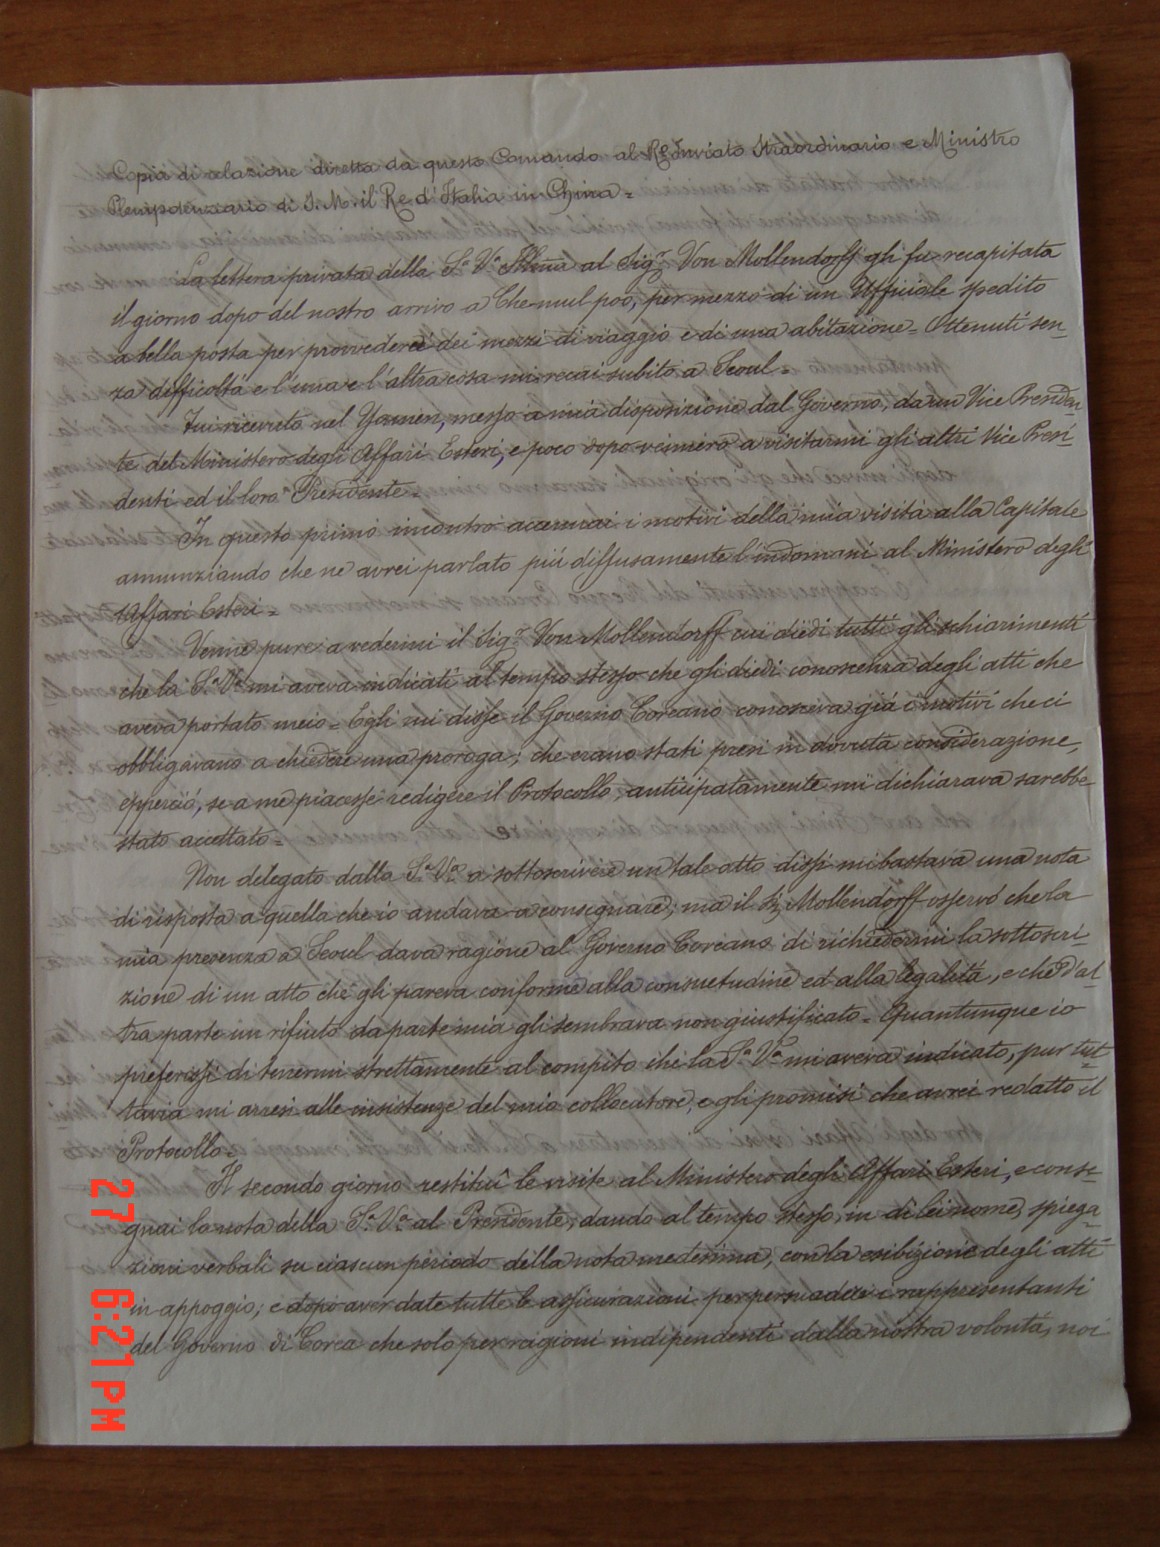 Copia di relazione diretta da questo Comando al R.° Inviato Straordinario e Ministro
Plenipotenziario di S. M. il Re d'Italia in China =
La lettera privata della S.ª V.ª Ill.ma al Sig.r Von Mollendorff gli fu recapitata
il giorno dopo del nostro arrivo a Che-mul-poo, per mezzo di un Ufficiale spedito
a bella posta per provvederci dei mezzi di viaggio e di una abitazione = Ottenuti sen-
za difficoltà e l'una e l'altra cosa mi recai subito a Seoul =
Fui ricevuto nel Yamen, messo a mia disposizione dal Governo, da un Vice Presiden-
te del Ministero degli Affari Esteri, e poco dopo vennero a visitarmi gli altri Vice Presi-
denti ed il loro Presidente =
In questo primo incontro accennai i motivi della mia visita alla Capitale
annunziando che ne avrei parlato più diffusamente l'indomani al Ministero degli
Affari Esteri =
Venne pure a vedermi il Sig.r Von Mollendorff cui diedi tutti gli schiarimenti
che la S.ª V.ª mi aveva indicati al tempo stesso che gli diedi conoscenza degli atti che
aveva portato meco = Egli mi disse il Governo Coreano conosceva già i motivi che ci
obbligavano a chiedere una proroga; che erano stati presi in dovuta considerazione,
epperciò, se a me piacesse redigere il Protocollo, anticipatamente mi dichiarava sarebbe
stato accettato =
Non delegato dalla S.ª V.ª a sottoscrivere un tale atto dissi mi bastava una nota
di risposta a quella che io andava a consegnare; ma il Sig. Mollendorff osservò che la
mia presenza a Seoul dava ragione al Governo Coreano di richiedermi la sottoscri-
zione di un atto che gli pareva conforme alla consuetudine ed alla legalità, e che d'al-
tra parte un rifiuto da parte mia gli sembrava non giustificato = Quantunque io
preferissi di tenermi strettamente al compito che la S.ª V.ª mi aveva indicato, pur tut-
tavia mi arresi alle insistenze del mio collocutore, e gli promisi che avrei redatto il
Protocollo =
Il secondo giorno restituî le visite al Ministero degli Affari Esteri, e conse-
gnai la nota della S.ª V.ª al Presidente, dando al tempo stesso, in di lei nome, spiega-
zioni verbali su ciascun periodo della nota medesima, con la esibizione degli atti
in appoggio; e dopo aver date tutte le assicurazioni per persuadere i rappresentanti
del Governo di Corea che solo per ragioni indipendenti dalla nostra volontà, noi
27 6:21 PM